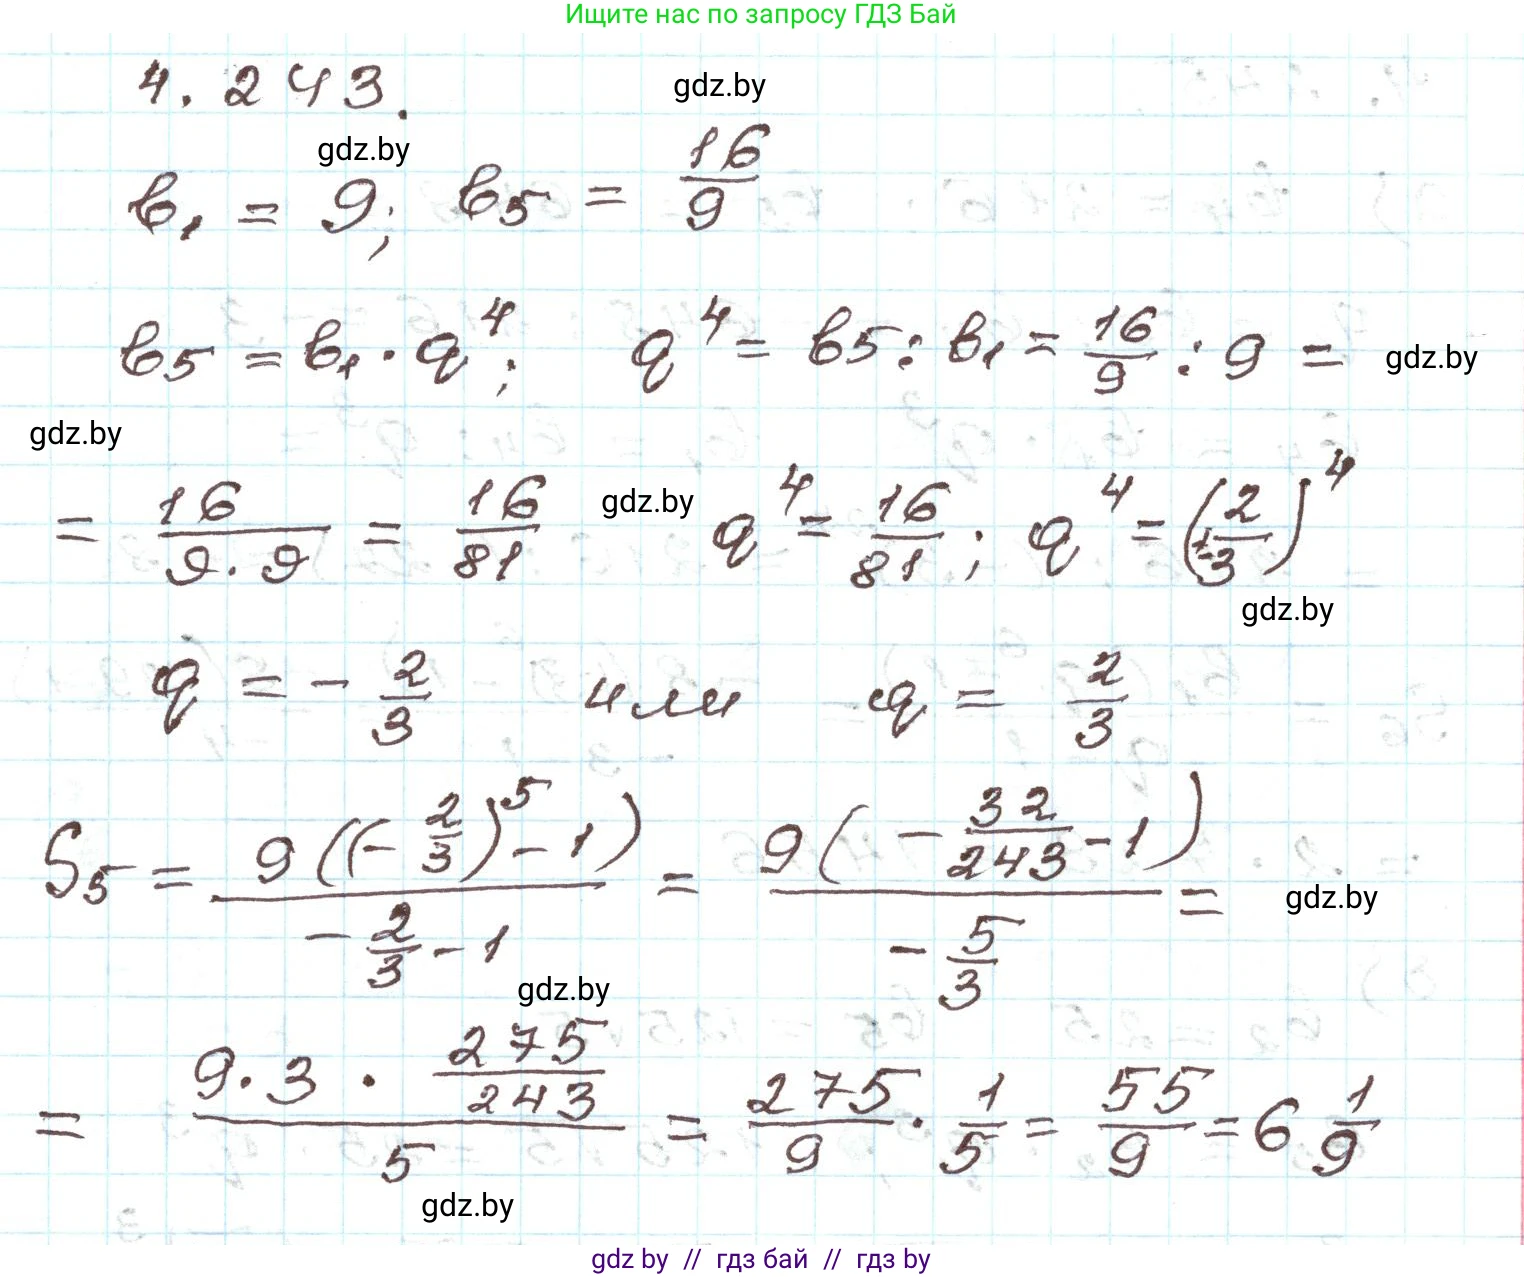 Ищите нас по запросу ГДЗ Бай
4.243. gdz.by
gdz.by
b₁ = 9; b₅ = 16/9
b₅ = b₁ · q⁴; q⁴ = b5 : b₁ = 16/9 : 9 = gdz.by
gdz.by
= 16/(9·9) = 16/81 gdz.by q⁴ = 16/81; q⁴ = (±2/3)⁴
gdz.by
q = - 2/3 или q = 2/3
S₅ = 9((-2/3)⁵ - 1)/(-2/3 - 1) = 9(-32/243 - 1)/(-5/3) = gdz.by
gdz.by
= (9·3 · 275/243)/5 = 275/9 · 1/5 = 55/9 = 6 1/9
gdz.by
gdz by // гдз бай // гдз by